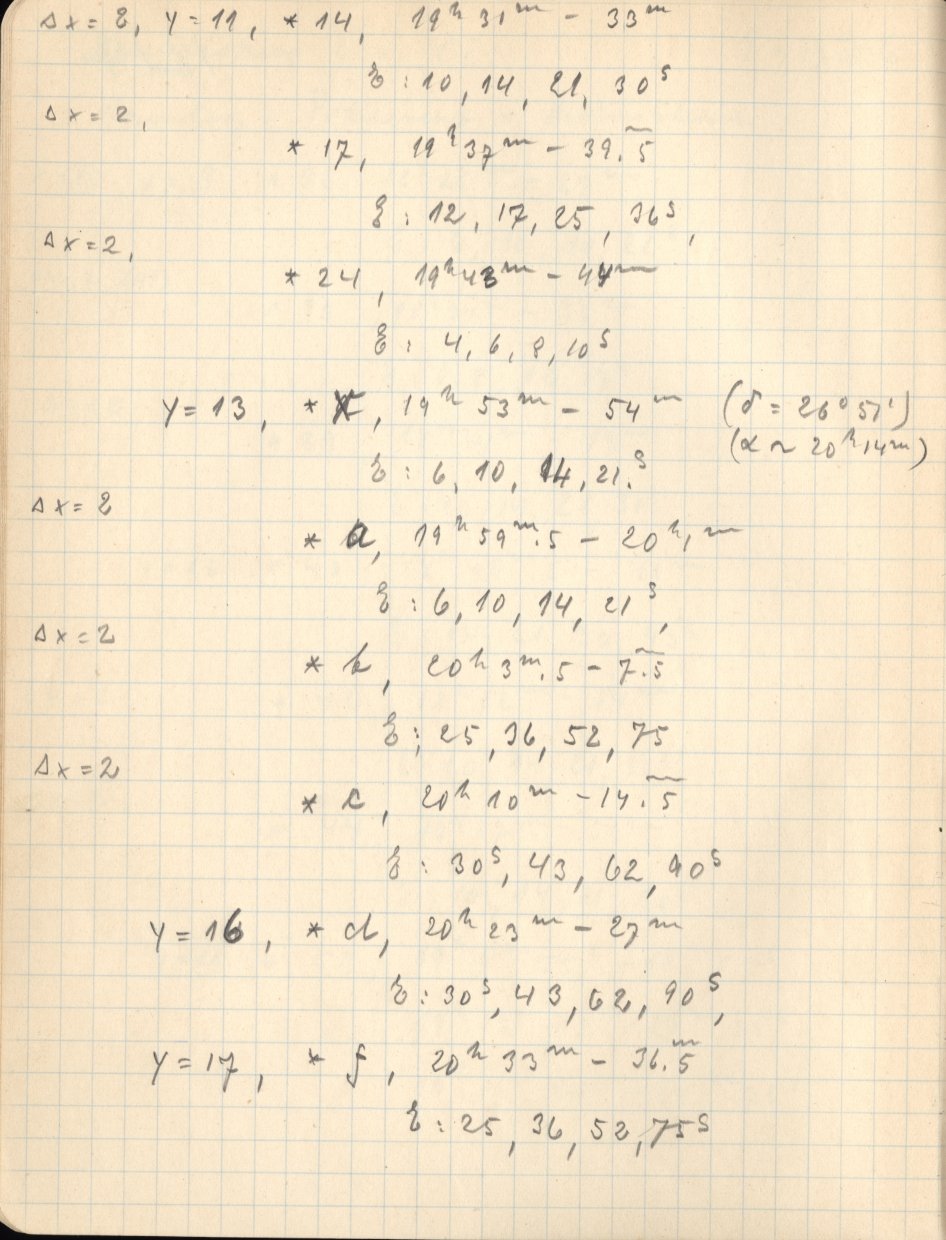 Δx = 2, y = 11, * 14, 19ʰ 31ᵐ – 33ᵐ
ξ : 10, 14, 21, 30ˢ
Δx = 2,
* 17, 19ʰ 37ᵐ – 39.ᵐ5
ξ : 12, 17, 25, 36ˢ,
Δx = 2,
* 24, 19ʰ 43ᵐ – 44ᵐ
ξ : 4, 6, 8, 10ˢ
y = 13, * X, 19ʰ 53ᵐ – 54ᵐ (δ = 26° 51')
(α ~ 20ʰ 14ᵐ)
ξ : 6, 10, 14, 21.ˢ
Δx = 2
* a, 19ʰ 59ᵐ.5 – 20ʰ 1ᵐ
ξ : 6, 10, 14, 21ˢ,
Δx = 2
* b, 20ʰ 3ᵐ.5 – 7.ᵐ5
ξ : 25, 36, 52, 75
Δx = 2
* c, 20ʰ 10ᵐ – 14.ᵐ5
ξ : 30ˢ, 43, 62, 90ˢ
y = 16, * d, 20ʰ 23ᵐ – 27ᵐ
ξ : 30ˢ, 43, 62, 90ˢ,
y = 17, * f, 20ʰ 33ᵐ – 36.ᵐ5
ξ : 25, 36, 52, 75ˢ